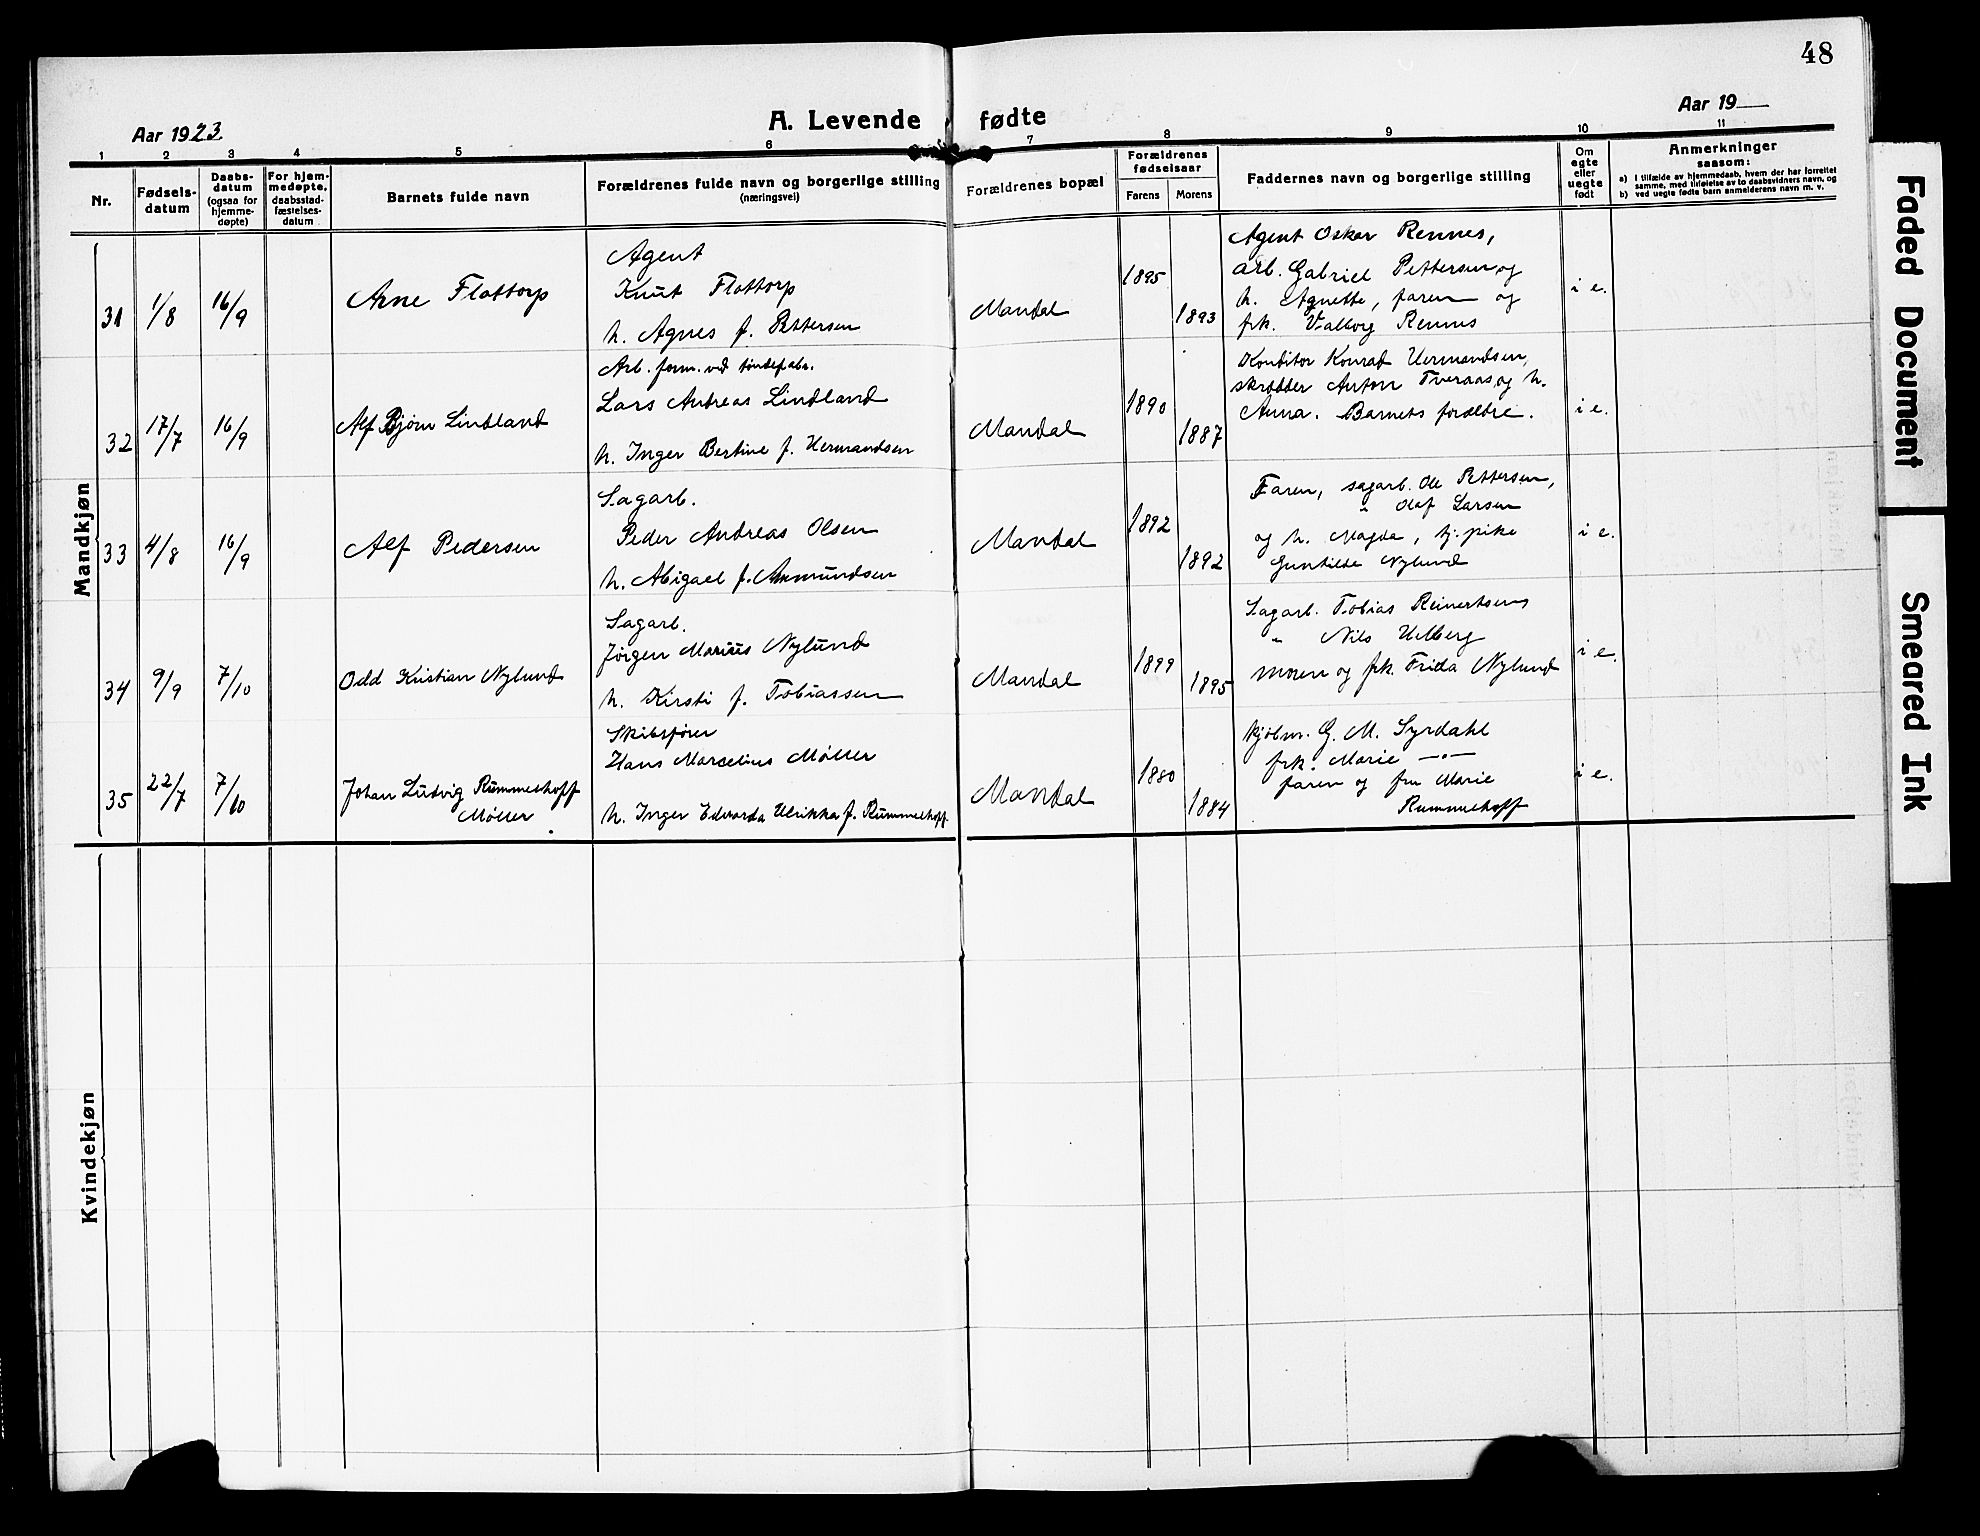 48
Aar 1923
A. Levende fødte
Aar 19
1 2 3 4 5 6 7 8 9 10 11
Nr.
Fødsels-
datum
Daabs-
datum
(ogsaa for
hjemme-
døpte)
For hjem-
medøpte,
daabsstad-
fæstelses-
datum
Barnets fulde navn
Forældrenes fulde navn og borgerlige stilling
(næringsvei)
Forældrenes bopæl
Forældrenes
fødselsaar
Farens Morens
Faddernes navn og borgerlige stilling
Om
egte
eller
uegte
født
Anmerkninger
saasom:
a) I tilfælde av hjemmedaab, hvem der har forrettet
samme, med tilføielse av to daabsvidners navn, og
b) ved uegte fødte barn anmelderens navn m. v.
Mandkjøn
31 1/8 16/9
Arne Flottorp
Agent
Knut Flottorp
h. Agnes f. Pettersen
Mandal
1895
1893
Agent Oskar Rennes,
arb. Gabriel Pettersen og
h. Agnette, faren og
frk. Valborg Rennes
i e.
32 17/7 16/9
Alf Bjørn Lindland
Arb. form. ved tøndefabr.
Lars Andreas Lindland
h. Inger Bertine f. Hermandsen
Mandal
1890
1887
Konditor Konrad Hermandsen,
skrædder Anton Tveraas, og h.
Anna. Barnets forældre.
i e.
33 4/8 16/9
Alf Pedersen
Sagarb.
Peder Andreas Olsen
h. Abigael f. Anmundsen
Mandal
1892
1892
Faren, sagarb. Ole Pettersen,
" Olaf Larsen
og h. Magda, tj. pike
Gunhilde Nylund
i e.
34 9/9 7/10
Odd Kristian Nylund
Sagarb.
Jørgen Marius Nylund
h. Kirsti f. Tobiassen
Mandal
1899
1895
Sagarb. Tobias Reinertsen
" Nils Udberg
moren og frk. Frida Nylund
i e.
35 22/7 7/10
Johan Ludvig Rummelhoff
Møller
Skibsfører
Hans Marcelius Møller
h. Inger Edvarda Ulrikka f. Rummelhoff
Mandal
1880
1884
kjøbm. G. M. Syrdahl
frk. Marie —"—
faren og fru Marie
Rummelhoff
i e.
Kvindekjøn
Faded Document
Smeared Ink